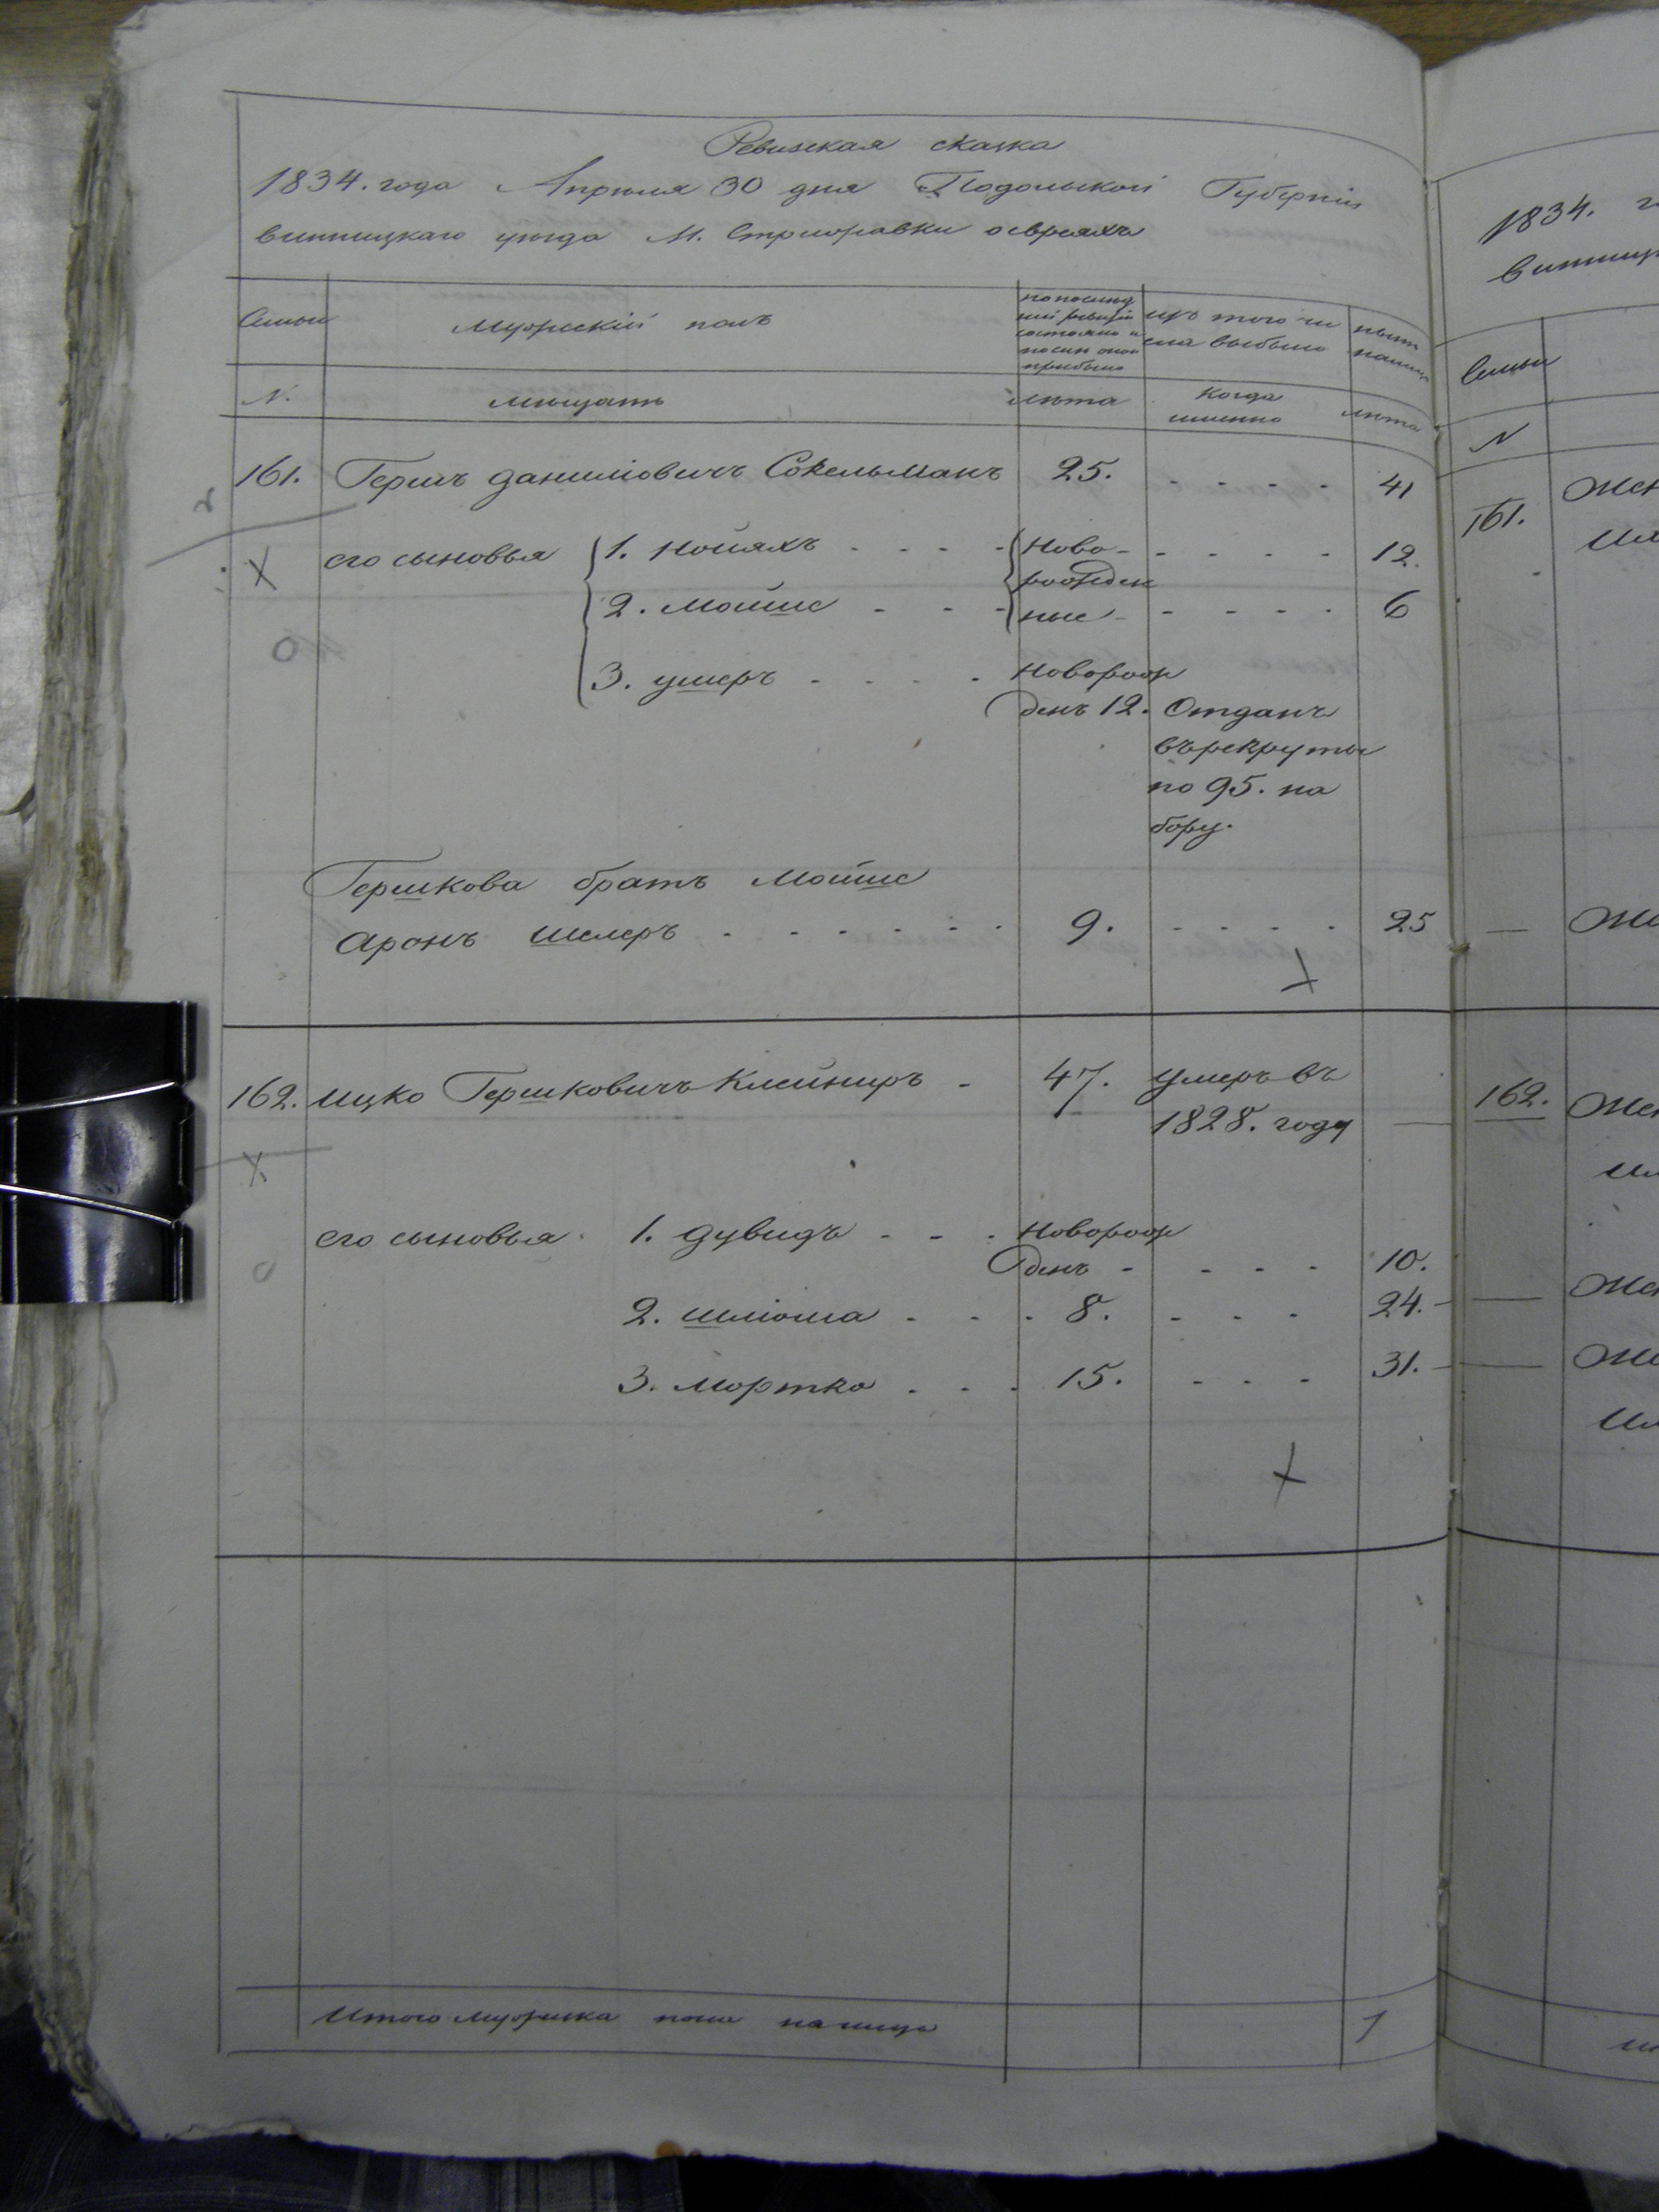 Ревизская сказка
1834. года Апреля 30 дня Подольской Губернии
винницкаго уезда М. Стрижавки о евреяхъ
Семьи
Мужеский полъ
по послед
ней ревизии
состояло и
после оной
прибыло
изъ того чи
сла выбыло
ныне
налицо
N.
мещане
лета
Когда
именно
лета
161. Гершъ даниловичъ Сокельманъ 25. - - - - 41
его сыновья 1. Нойяхъ - - - Ново- - - - - 12.
рожден
2. мошис - - - ные - - - - - 6
3. умеръ - - - - новорож
денъ 12. Отданъ
въ рекруты
по 95. на
бору.
Гершкова братъ мошис
аронъ шмеръ - - - - - - - 9. - - - - 25
162. ицко Гершковичъ Клейнеръ - 47. умеръ въ
1828. году
его сыновья 1. дувидъ - - - новорож
денъ - - - - 10.
2. шлиома - - - 8. - - - 24.
3. мортко - - - 15. - - - 31.
Итого мужеска пола налицо 7
1834.
Семьи
N
161.
162.